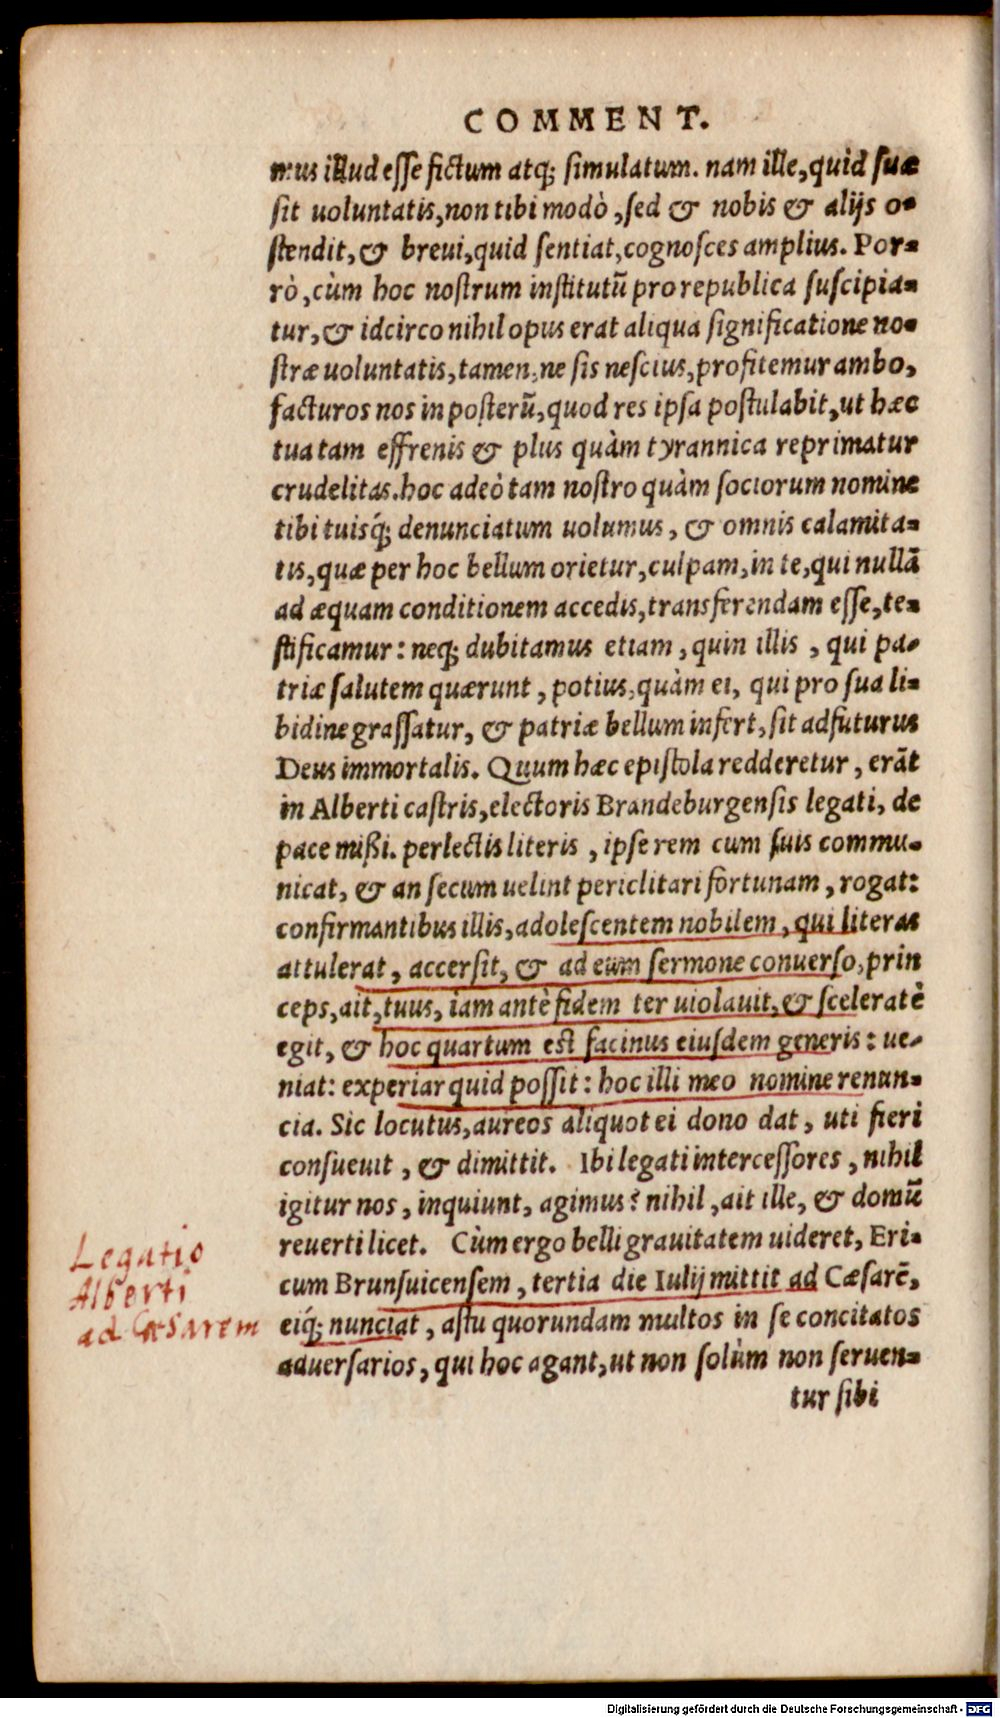 COMMENT.
mus illud esse fictum atq; simulatum. nam ille, quid suæ
sit uoluntatis, non tibi modò, sed & nobis & alijs o-
stendit, & breui, quid sentiat, cognosces amplius. Por-
rò, cùm hoc nostrum institutũ pro republica suscipia-
tur, & idcirco nihil opus erat aliqua significatione no-
stræ uoluntatis, tamen, ne sis nescius, profitemur ambo,
facturos nos in posterũ, quod res ipsa postulabit, ut hæc
tua tam effrenis & plus quàm tyrannica reprimatur
crudelitas. hoc adeò tam nostro quàm sociorum nomine
tibi tuisq́; denunciatum uolumus, & omnis calamita-
tis, quæ per hoc bellum orietur, culpam, in te, qui nullã
ad æquam conditionem accedis, transferendam esse, te-
stificamur: neq; dubitamus etiam, quin illis, qui pa-
triæ salutem quærunt, potius, quàm ei, qui pro sua li-
bidine grassatur, & patriæ bellum infert, sit adfuturus
Deus immortalis. Quum hæc epistola redderetur, erãt
in Alberti castris, electoris Brandeburgensis legati, de
pace mißi. perlectis literis, ipse rem cum suis commu-
nicat, & an secum uelint periclitari fortunam, rogat:
confirmantibus illis, adolescentem nobilem, qui literas
attulerat, accersit, & ad eum sermone conuerso, prin
ceps, ait, tuus, iam antè fidem ter uiolauit, & sceleratè
egit, & hoc quartum est facinus eiusdem generis: ue-
niat: experiar quid possit: hoc illi meo nomine renun-
cia. Sic locutus, aureos aliquot ei dono dat, uti fieri
consueuit, & dimittit. Ibi legati intercessores, nihil
igitur nos, inquiunt, agimus? nihil, ait ille, & domũ
reuerti licet. Cùm ergo belli grauitatem uideret, Eri-
cum Brunsuicensem, tertia die Iulij mittit ad Cæsarẽ,
eiq́; nunciat, astu quorundam multos in se concitatos
aduersarios, qui hoc agant, ut non solùm non seruen-
tur sibi
Legatio
Alberti
ad Cæsarem
Digitalisierung gefördert durch die Deutsche Forschungsgemeinschaft - DFG